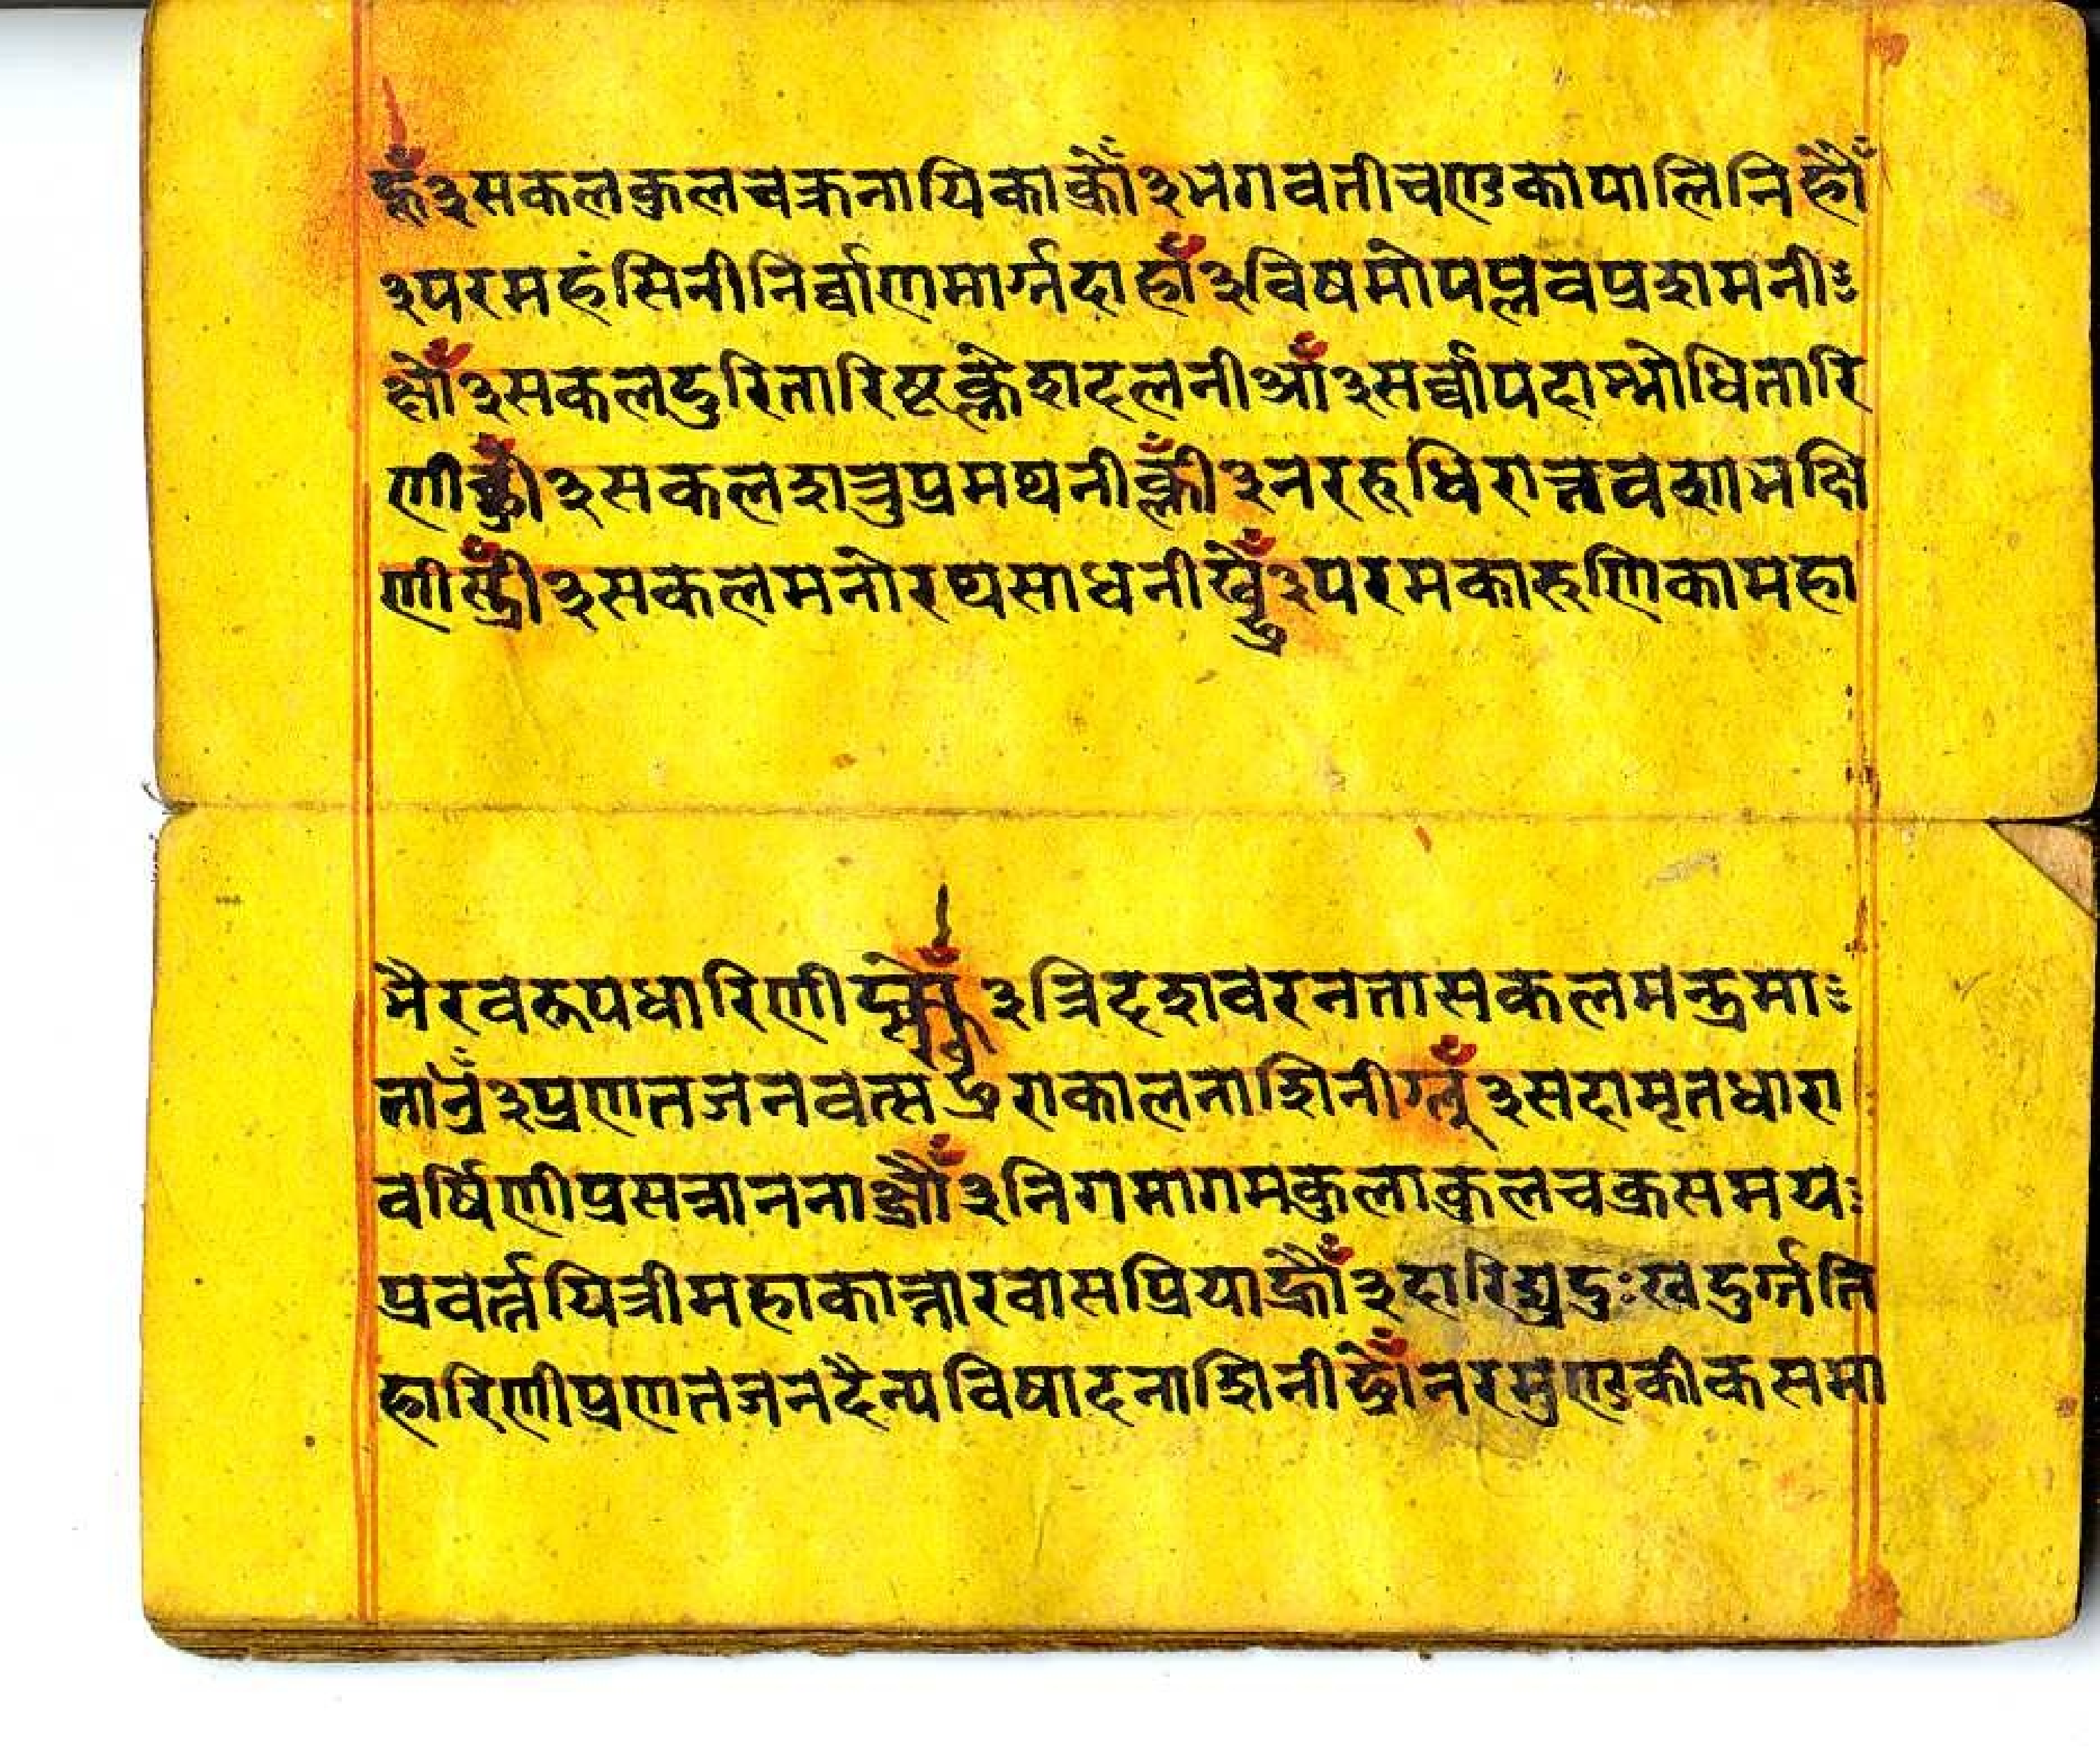 ह्लँ३सकलकुलचक्रनायिकाक्रौँ३भगवतीचण्डकापालिनिह्रौँ
३परमहंसिनीनिर्व्वाणमार्ग्गदाहाँ३विषमोपप्लवप्रशमनीः
क्षाँ३सकलदुरितारिष्टक्लेशदलनीआँ३सर्व्वापदाम्भोधितारि
णी३सकलशत्रुप्रमथनीक्लीँ३नररुधिरान्त्रवशाभक्षि
णीस्त्रीँ३सकलमनोरथसाधनी३परमकारुणिकामहा
भैरवरूपधारिणी३त्रिदशवरनत्तासकलमन्त्रमाः
३प्रणतजनवत्स राकालनाशिनीग्लूँ३सदामृतधारा
वर्षिणीप्रसन्नानना३निगमागमकुलाकुलचक्रसमयः
प्रवर्त्तयित्रीमहाकान्तारवासप्रियाह्रौँ३दारिद्र्यदुःखदुर्ग्गति
हारिणीप्रणतजनदैन्यविषादनाशिनीनरमुण्डकीकसमा